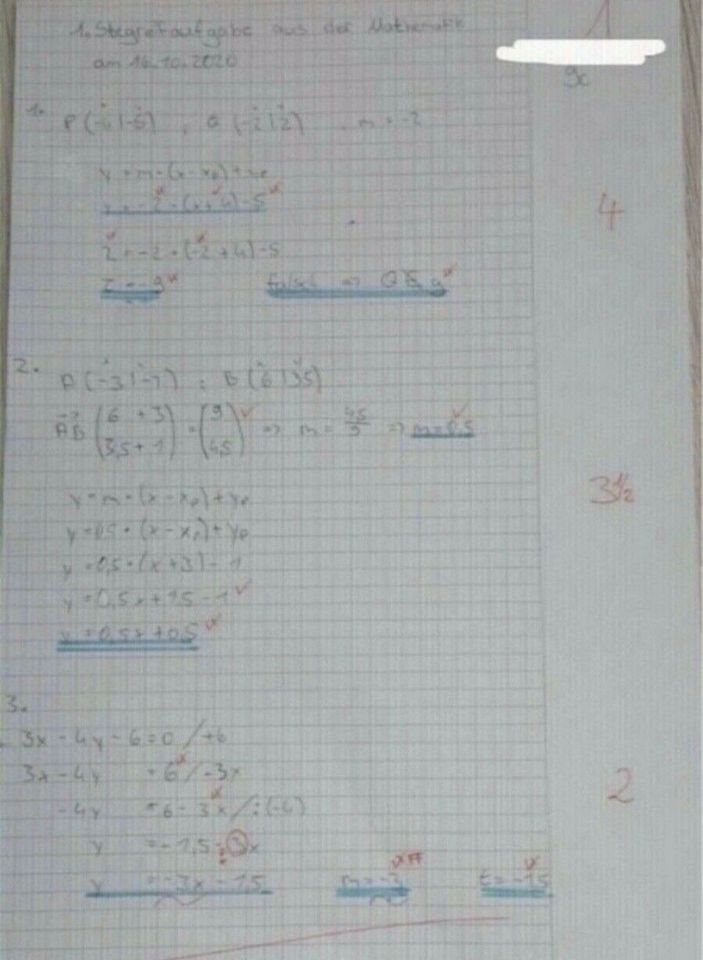 1. Stegreifaufgabe aus der Mathematik
am 16.10.2020
1
9c
1. P(-4|-5) , Q(-2|2) m=-2
y=m·(x-xp)+yp
y=-2·(x+4)-5
4
2=-2·(-2+4)-5
2=-9 falsch => Q∉g
2. A(-3|-1) ; B(6|3,5)
AB (6 +3 / 3,5+1) = (9 / 4,5) => m= 4,5/9 => m=0,5
3 1/2
y=m·(x-xp)+yp
y=0,5·(x-xp)+yp
y=0,5·(x+3)-1
y=0,5x+1,5-1
y=0,5x+0,5
3.
3x-4y-6=0 /+6
3x-4y =6 /-3x
-4y =6-3x /:(-4)
2
y =-1,5-3x
y =-3x-1,5 m=-3 FF t=-1,5